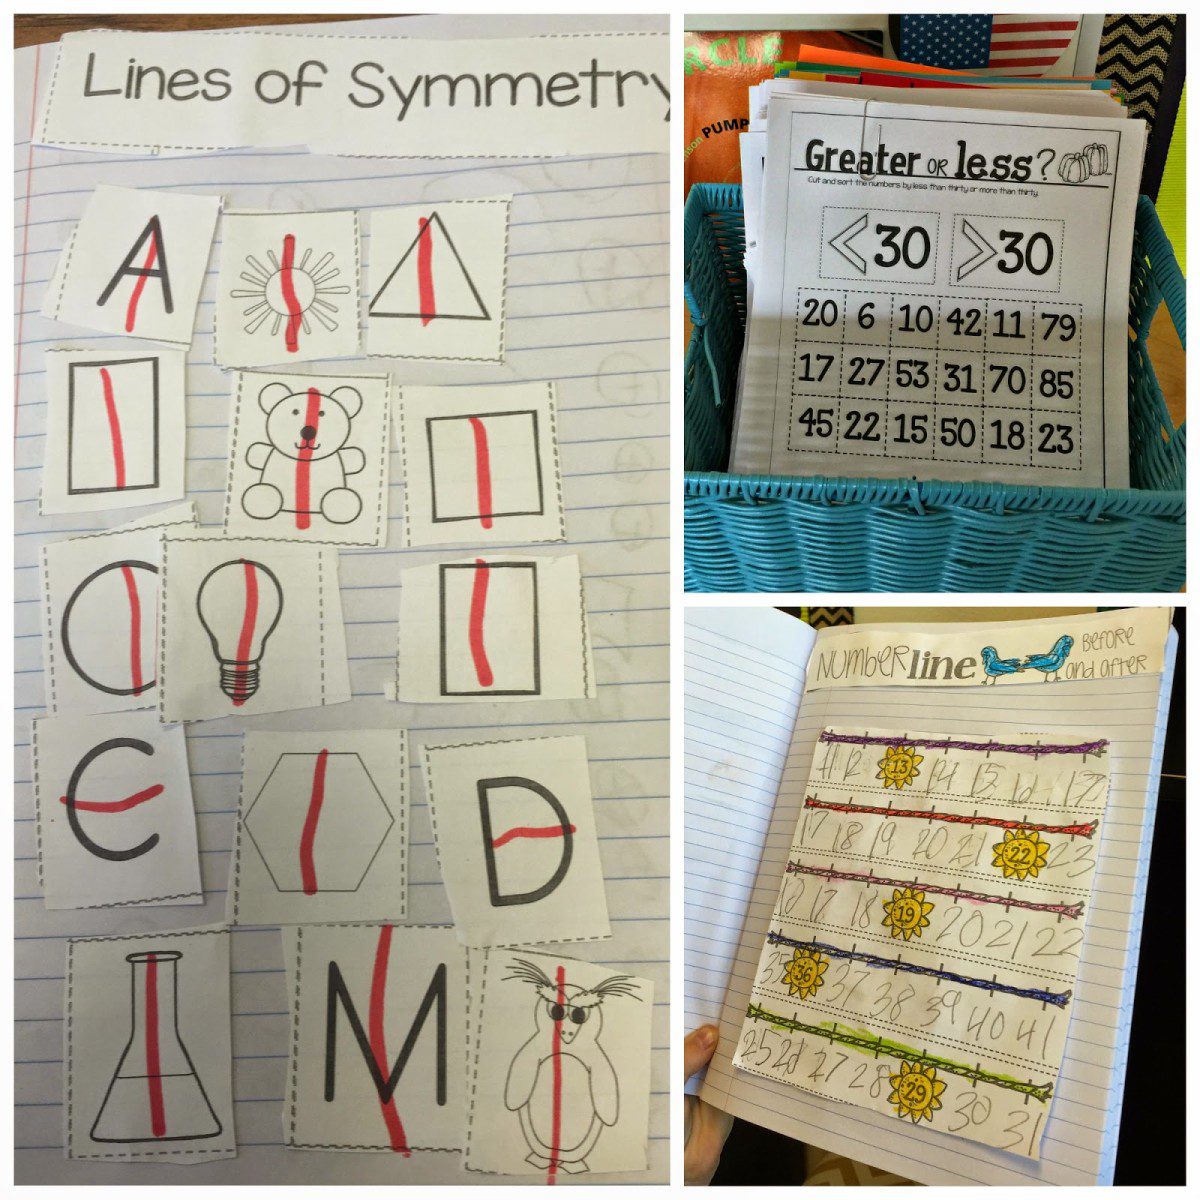 Lines of Symmetry
A
E
D
M
RCLE
PUMP
Greater OR less?
Cut and sort the numbers by less than thirty or more than thirty.
< 30 > 30
20 6 10 42 11 79
17 27 53 31 70 85
45 22 15 50 18 23
NUMBER line BEFORE
and after
11 12 13 14 15 16 17
17 18 19 20 21 22 23
17 18 19 20 21 22
35 36 37 38 39 40 41
25 27 28 29 30 31